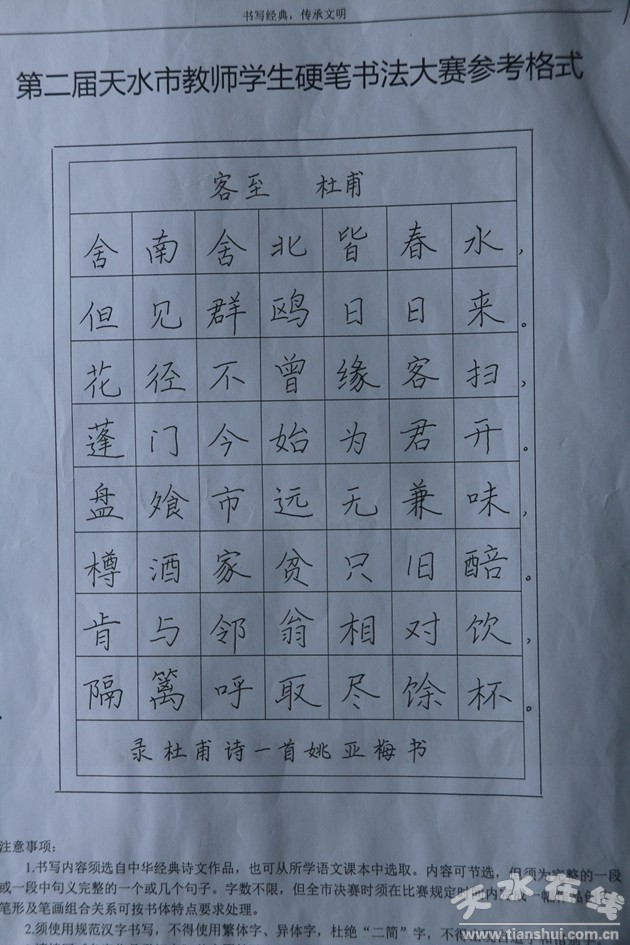 书写经典，传承文明
第二届天水市教师学生硬笔书法大赛参考格式
客至 杜甫
舍南舍北皆春水，
但见群鸥日日来。
花径不曾缘客扫，
蓬门今始为君开。
盘飧市远无兼味，
樽酒家贫只旧醅。
肯与邻翁相对饮，
隔篱呼取尽馀杯。
录杜甫诗一首姚亚梅书
注意事项：
1.书写内容须选自中华经典诗文作品，也可从所学语文课本中选取。内容可节选，但须为完整的一段
或一段中句义完整的一个或几个句子。字数不限，但全市决赛时须在比赛规定时间内
笔形及笔画组合关系可按书体特点要求处理。
2.须使用规范汉字书写，不得使用繁体字、异体字，杜绝“二简”字，不得
天水在线
www.tianshui.com.cn